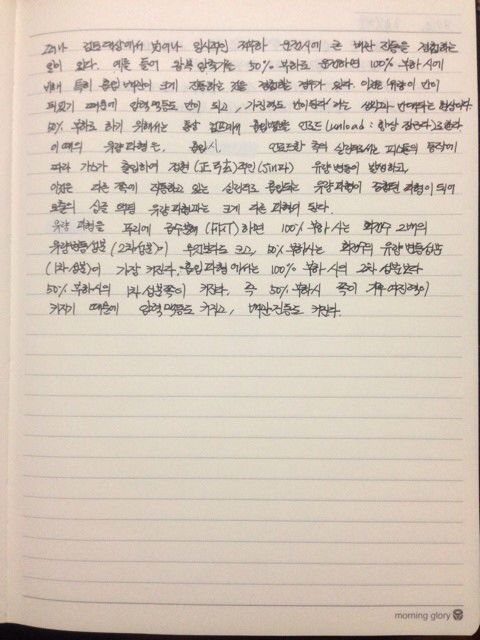 그러나 검토대상에서 벗어나 일시적인 저부하 운전시에 큰 배관 진동을 경험하는
일이 있다. 예를 들어 왕복 압축기는 50% 부하로 운전하면 100% 부하 시에
비해 특히 흡입 배관이 크게 진동하는 것을 경험하는 경우가 있다. 이것은 유량이 반이
되었기 때문에 압력 맥동도 반이 되고, 가진력도 반이 된다 라는 상식과 반대되는 현상이다.
50% 부하로 하기 위해서는 통상 실린더에서 흡입밸브를 언로드(unload : 항상 잠근다)로 한다
이 때의 유량 파형은, 흡입시 언로드한 측의 실린더에서는 피스톤의 동작에
따라 가스가 출입하여 정현(正弦)적인(sin파) 유량 변동이 발생하고,
이것은 다른 쪽에 작동하고 있는 실린더로 흡입되는 유량 파형이 조합된 파형이 되어
토출의 싱글 유량파형과는 크게 다른 파형이 된다.
유량 파형을 푸리에 급수분해(FFT)하면 100% 부하 시는 회전수 2배의
유량변동성분(2차성분)이 무엇보다도 크고, 50% 부하시는 회전수의 유량 변동성분
(1차 성분)이 가장 커진다. 흡입파형에서는 100% 부하 시의 2차 성분보다
50% 부하시의 1차 성분쪽이 커진다. 즉 50% 부하시 쪽이 가진력이
커지기 때문에 압력 맥동도 커지고, 배관 진동도 커진다.
morning glory